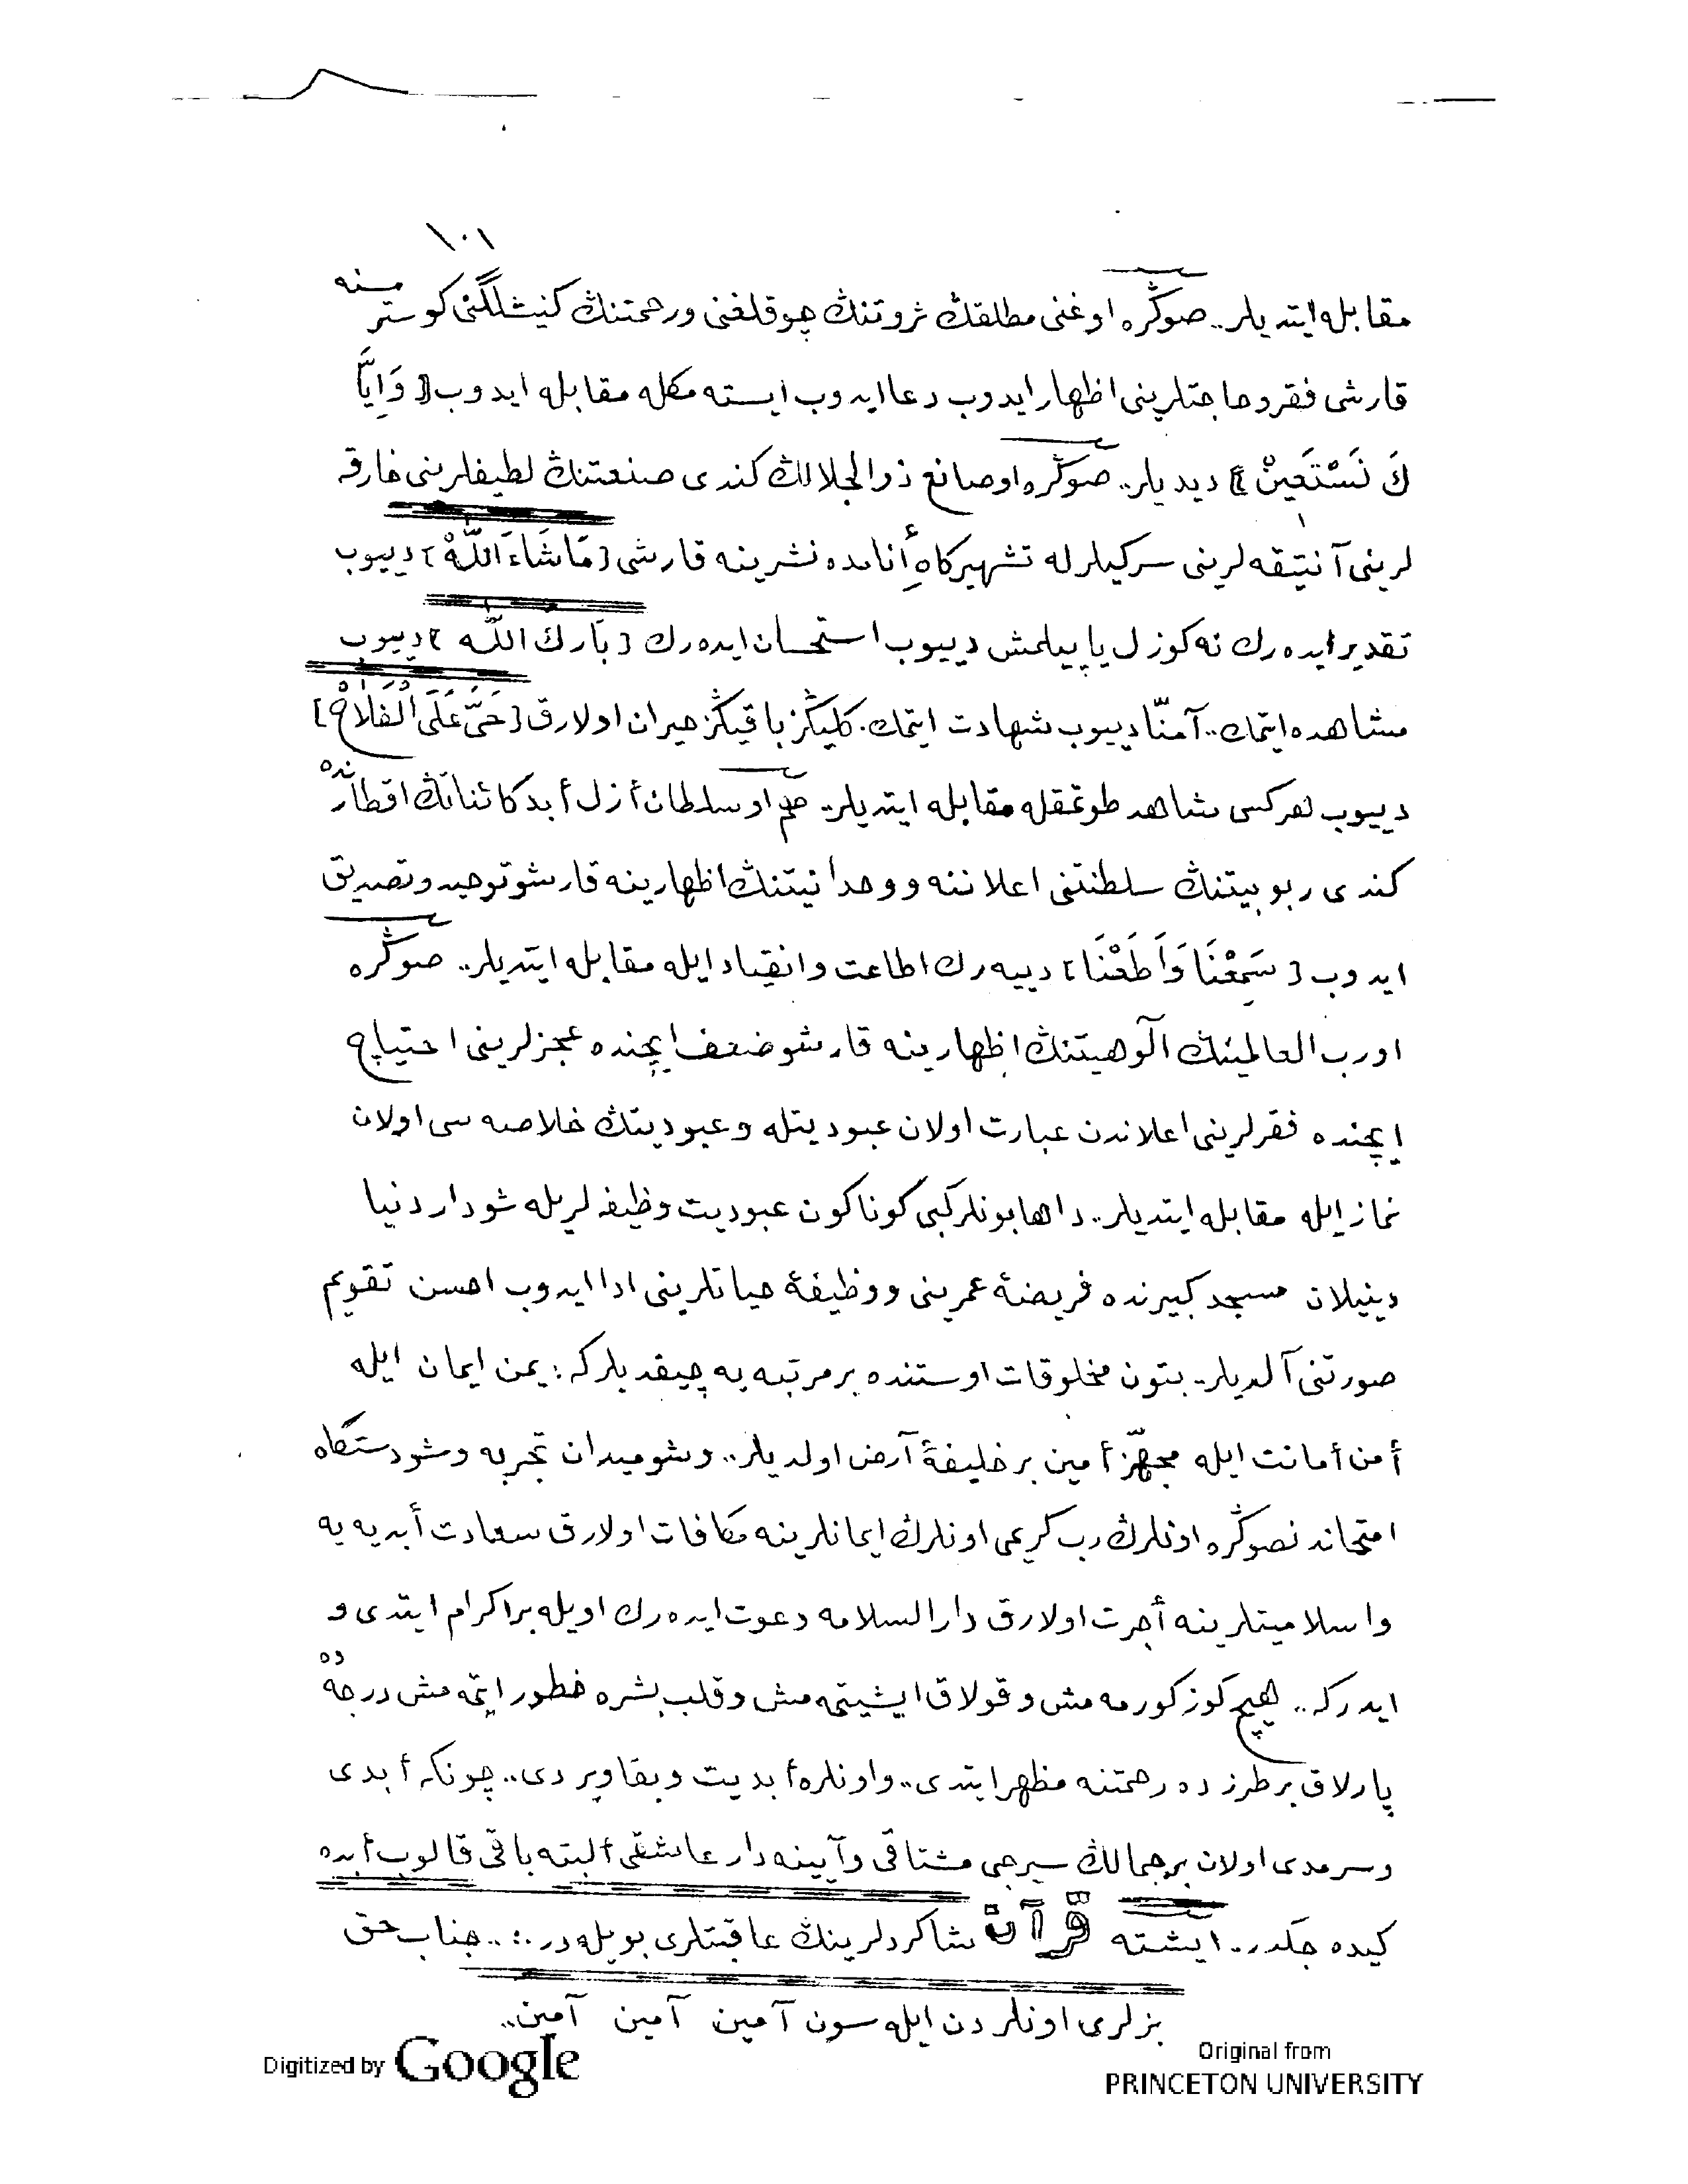 ١٠١
مقابله ايتديلر.. صوڭره او غنی مطلقڭ ثروتنڭ چوقلغنی و رحمتنڭ كنيشلگنی كوسترمسنه
قارشی فقر و حاجتلرينی اظهار ايدوب دعا ايدوب ايسته مكله مقابله ايدوب [ وَاِيَّا
كَ نَسْتَعِينْ ] ديديلر.. صوڭره او صانع ذوالجلالڭ كندی صنعتنڭ لطيفلرينی خارقه
لرينی آنتيقه لرينی سركيلرله تشهيركاهِ أنامده نشرينه قارشی [ مَاشَاءَ اللّٰهْ ] دييوب
تقدير ايده رك نه كوزل ياپيلمش دييوب استحسان ايده رك [ بَارَكَ اللّٰه ] دييوب
مشاهده ايتمك.. آمنّا دييوب شهادت ايتمك. كليڭز باقيڭز حيران اولارق [ حَیَّ عَلَی الْفَلَاحْ ]
دييوب هركسی شاهد طوتمقله مقابله ايتديلر.. هم او سلطان أزل أبد كائناتڭ اقطارنده
كندی ربوبيتنڭ سلطنتنی اعلاننه و وحدانيتنڭ اظهارينه قارشو توحيد و تصديق
ايدوب [ سَمِعْنَا وَاَطَعْنَا ] دييه رك اطاعت و انقياد ايله مقابله ايتديلر.. صوڭره
او رب العالمينڭ الوهيتنڭ اظهارينه قارشو ضعف ايچنده عجزلرينی احتياج
ايچنده فقرلرينی اعلاندن عبارت اولان عبوديتله و عبوديتڭ خلاصه سی اولان
نماز ايله مقابله ايتديلر.. داها بونلر كبی كوناكون عبوديت وظيفه لريله شو دار دنيا
دينيلان مسجد كبيرنده فريضهٔ عمرينی و وظيفهٔ حياتلرينی ادا ايدوب احسن تقويم
صورتنی آلديلر.. بتون مخلوقات اوستنده بر مرتبه يه چيقديلر كه : يمن ايمان ايله
أمن أمانت ايله مجهّز أمين بر خليفهٔ آرض اولديلر.. و شو ميدان تجربه و شو دستكاه
امتحاندنصوڭره اونلرڭ رب كريمی اونلرڭ ايمانلرينه مكافات اولارق سعادت أبديه يه
واسلاميتلرينه أجرت اولارق دارالسلامه دعوت ايده رك اويله بر اكرام ايتدی و
ايدركه.. هيچ كوز كورمه مش و قولاق ايشيتمه مش و قلب بشره خطور ايتمه مش درجه ده
پارلاق بر طرزده رحمتنه مظهر ايتدی.. و اونلره أبديت و بقا ويردی.. چونكه أبدی
و سرمدی اولان بر جمالڭ سيرجی مشتاقی و آيينه دار عاشقی ألبته باقی قالوب أبده
كيده جكدر.. ايشته قرآن شاكردلرينڭ عاقبتلری بويله در.:.. جناب حق
بزلری اونلردن ايله سون آمين آمين آمين..
Digitized by Google
Original from
PRINCETON UNIVERSITY